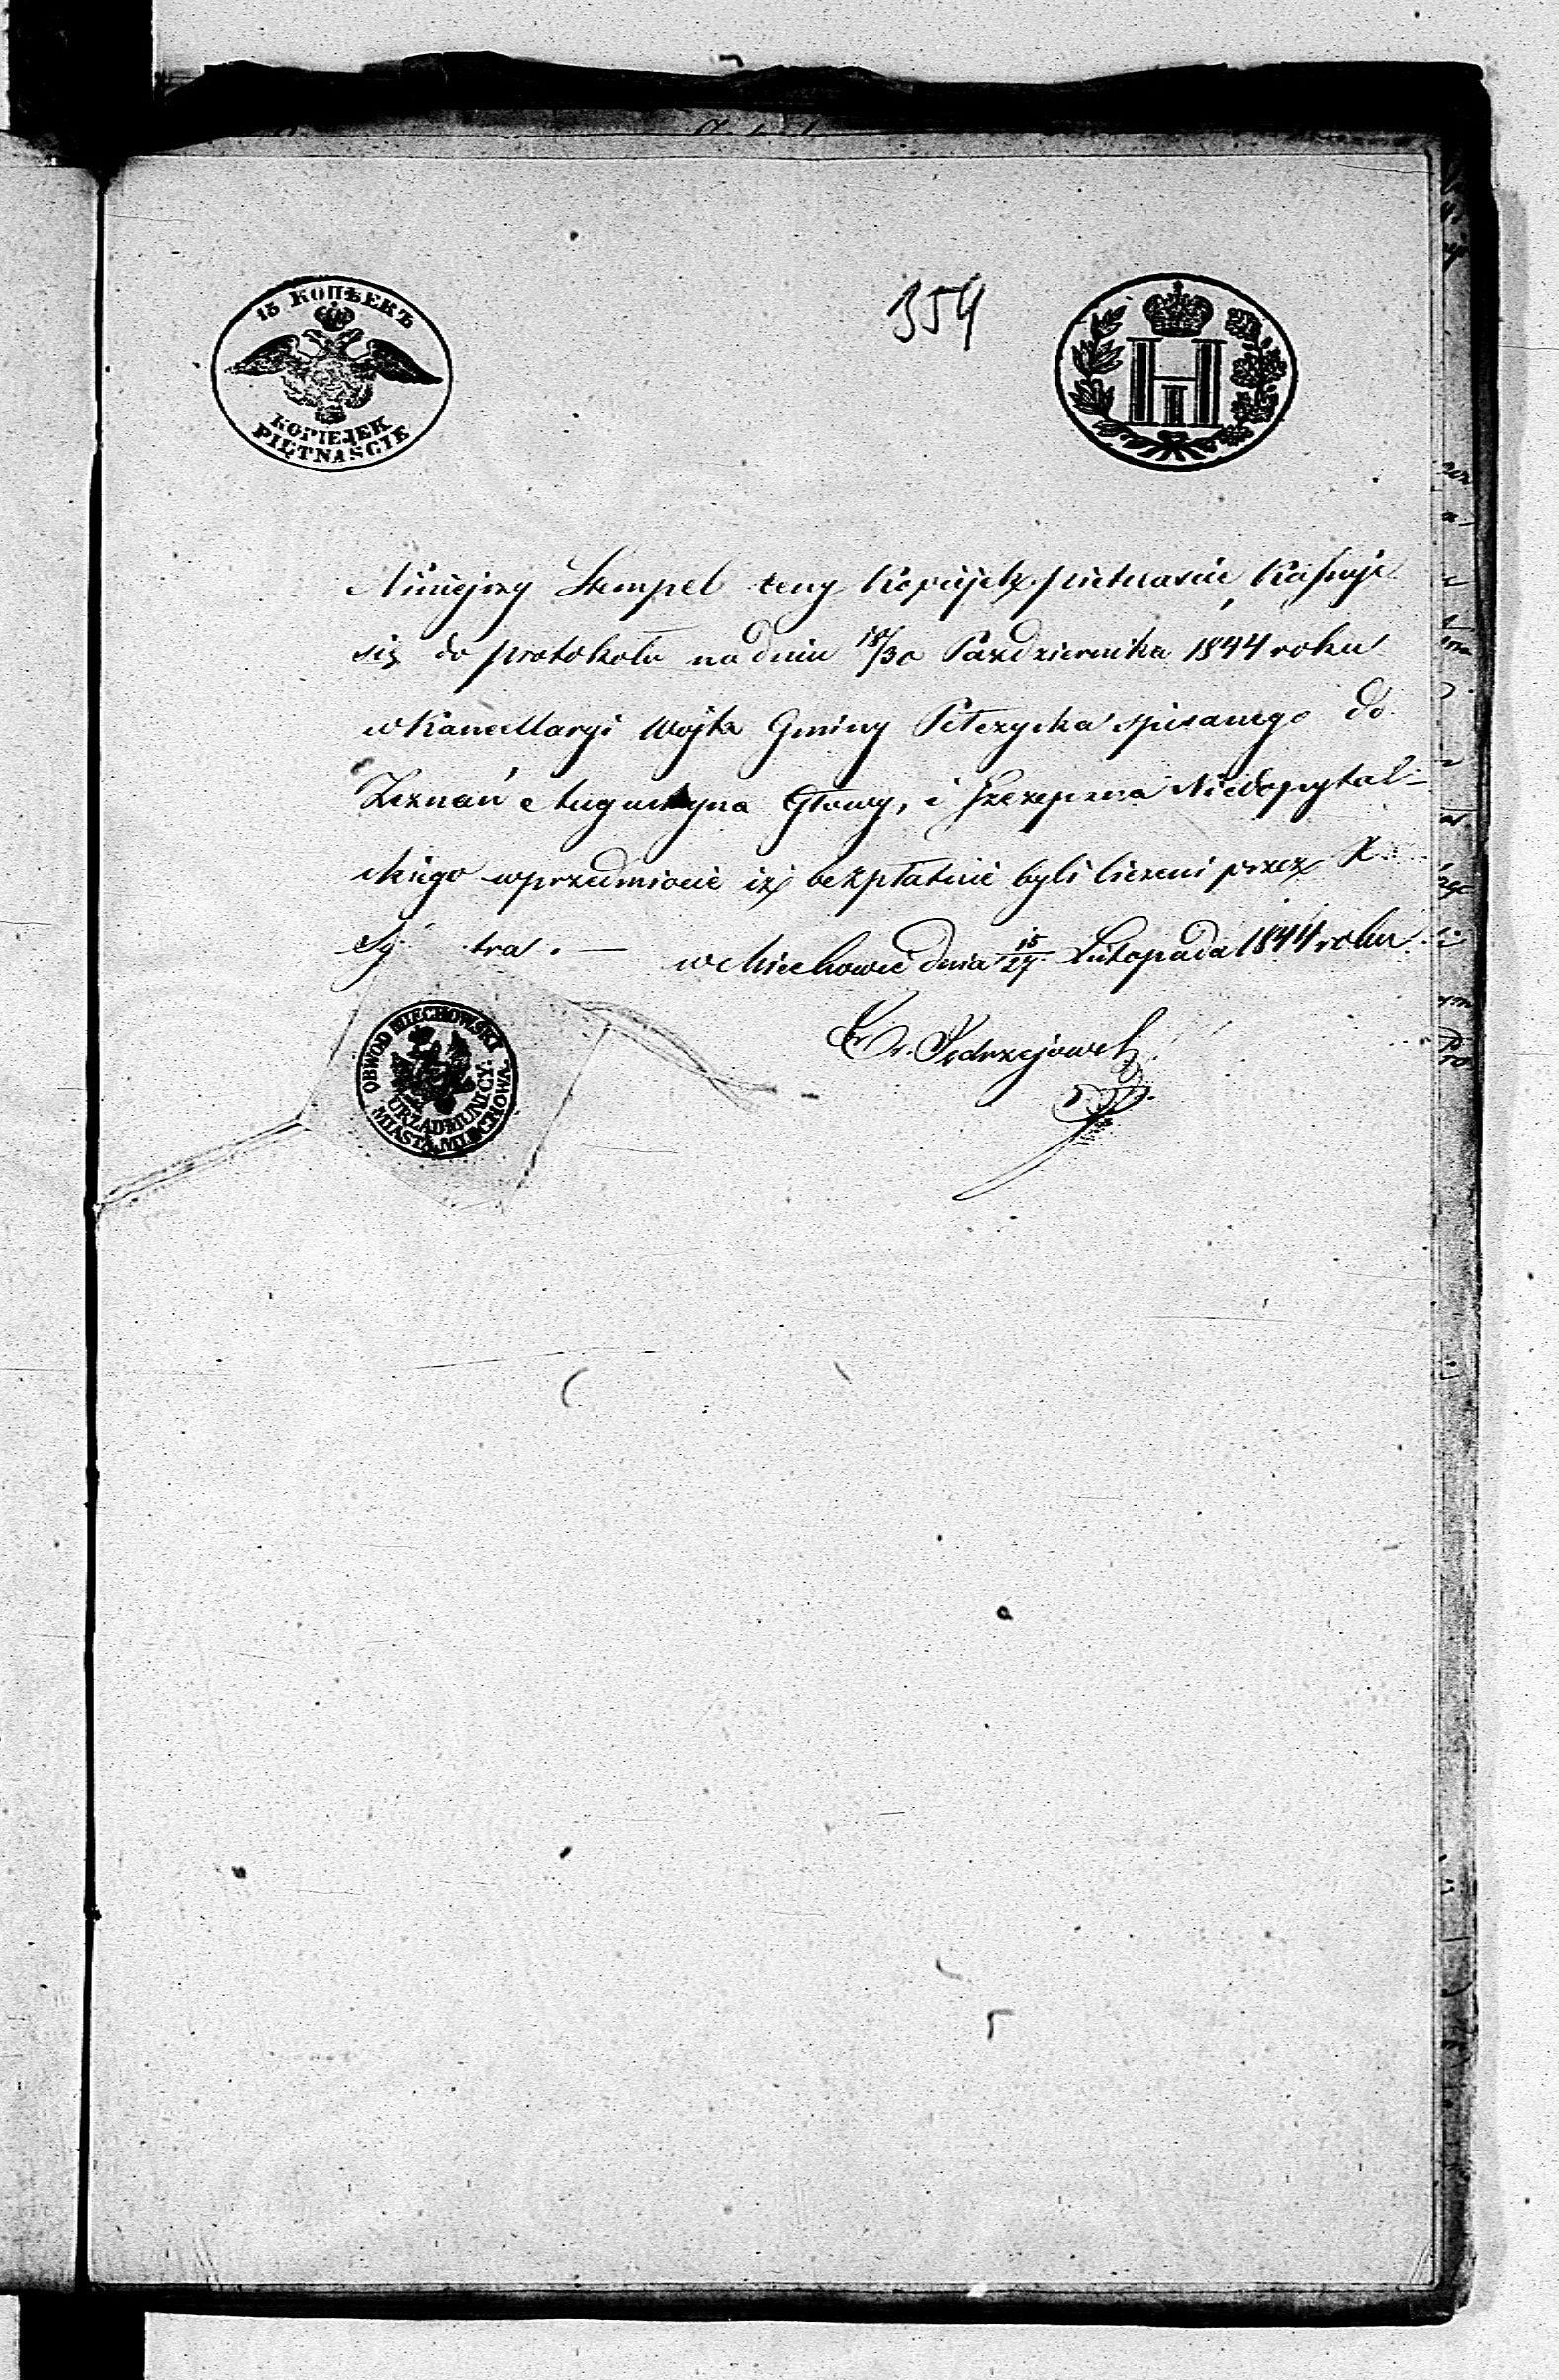 15 КОПѢЕКЪ
KOPIEJEK
PIĘTNAŚCIE
354
Niniejszy Stempel ceny Kopiejek pietnascie, Kassuje
się do protokołu na dniu 18/30 Pazdziernika 1844 roku
w Kancellaryi Wójta Gminy Pełczyska spisanego do
Zeznań Augustyna Głowy, i Szczepana Niedopytal-
skiego w przedmiocie iż bezpłatnie byli liczeni przez X.
w Miechowie dnia 15/27 Listopada 1844 roku
Jędrzejowski
OBWÓD MIECHOWSKI
URZĄD MUNICY:
MIASTA MIECHOWA